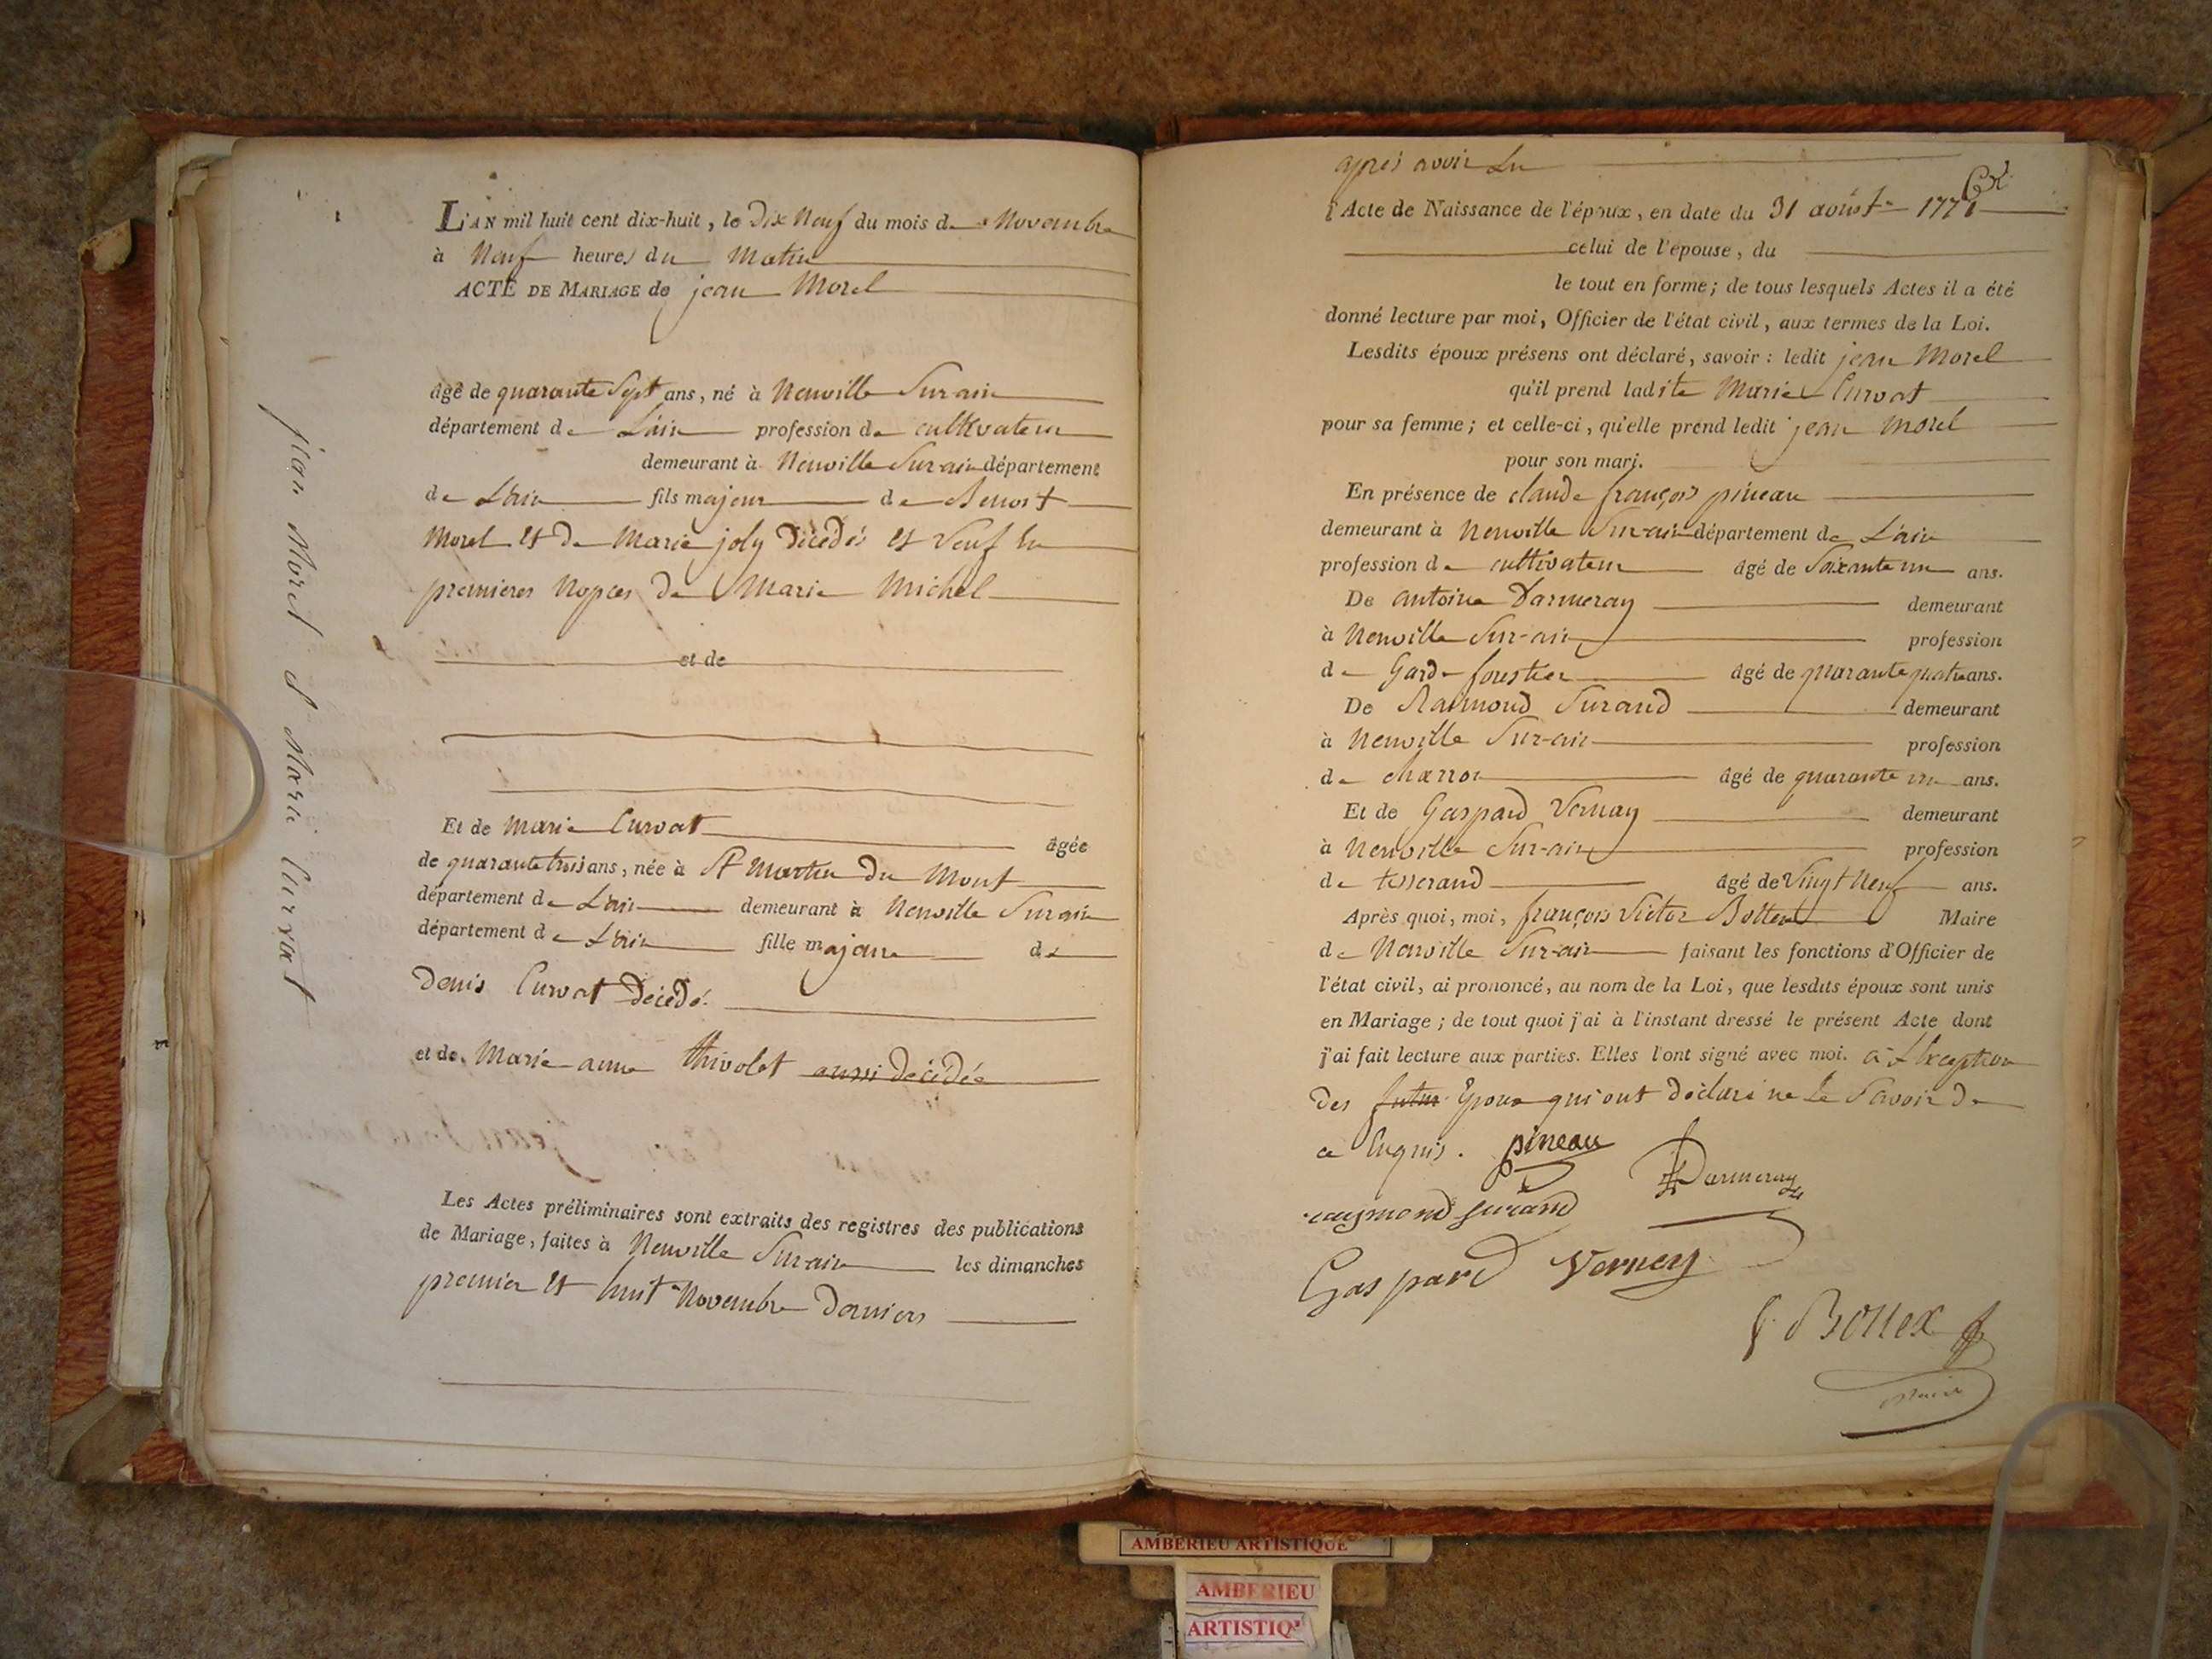 jean Morel et Marie Curvat
L'AN mil huit cent dix-huit, le Dix Neuf du mois de Novembre
à Neuf heures du Matin
ACTE DE MARIAGE de jean Morel
âgé de quarante Sept ans, né à Neuville Surain
département de L'ain profession de cultivateur
demeurant à Neuville Sur-ain département
de L'ain fils majeur de Benoit
Morel et De Marie joly Décédés et Veuf En
premieres Nopces De Marie Michel
et de
Et de Marie Curvat âgée
de quarante trois ans, née à St Martin Du Mont
département de L'ain demeurant à Neuville Surain
département de L'ain fille majeure de
Denis Curvat Décédé
et de Marie anne thivolet aussi décédée
Les Actes préliminaires sont extraits des registres des publications
de Mariage, faites à Neuville Surain les dimanches
premier et huit Novembre Derniers
après avoir Lu
l'Acte de Naissance de l'époux, en date du 31 août 1771
celui de l'epouse, du
le tout en forme; de tous lesquels Actes il a été
donné lecture par moi, Officier de l'état civil, aux termes de la Loi.
Lesdits époux présens ont déclaré, savoir : ledit jean Morel
qu'il prend ladite Marie Curvat
pour sa femme; et celle-ci, qu'elle prend ledit jean Morel
pour son mari.
En présence de claude françois pineau
demeurant à Neuville Sur-ain département de L'ain
profession de cultivateur âgé de Soixante un ans.
De antoine Darmeray demeurant
à Neuville Sur-ain profession
de Garde forestier âgé de quarante quatre ans.
De Raimond Surand demeurant
à Neuville Sur-ain profession
de charron âgé de quarante un ans.
Et de Gaspard Vernay demeurant
à Neuville Sur-ain profession
de tisserand âgé de Vingt Neuf ans.
Après quoi, moi, françois Victor Bottex Maire
de Neuville Sur-ain faisant les fonctions d'Officier de
l'état civil, ai prononcé, au nom de la Loi, que lesdits époux sont unis
en Mariage; de tout quoi j'ai à l'instant dressé le présent Acte dont
j'ai fait lecture aux parties. Elles l'ont signé avec moi. à L'exception
Des futur Epoux qui ont Déclaré ne Le Savoir De
ce Enquis. pineau
Darmeray
raymond surand
Gaspard Verney
Bottex
Maire
AMBERIEU ARTISTIQUE
AMBERIEU
ARTISTIQ